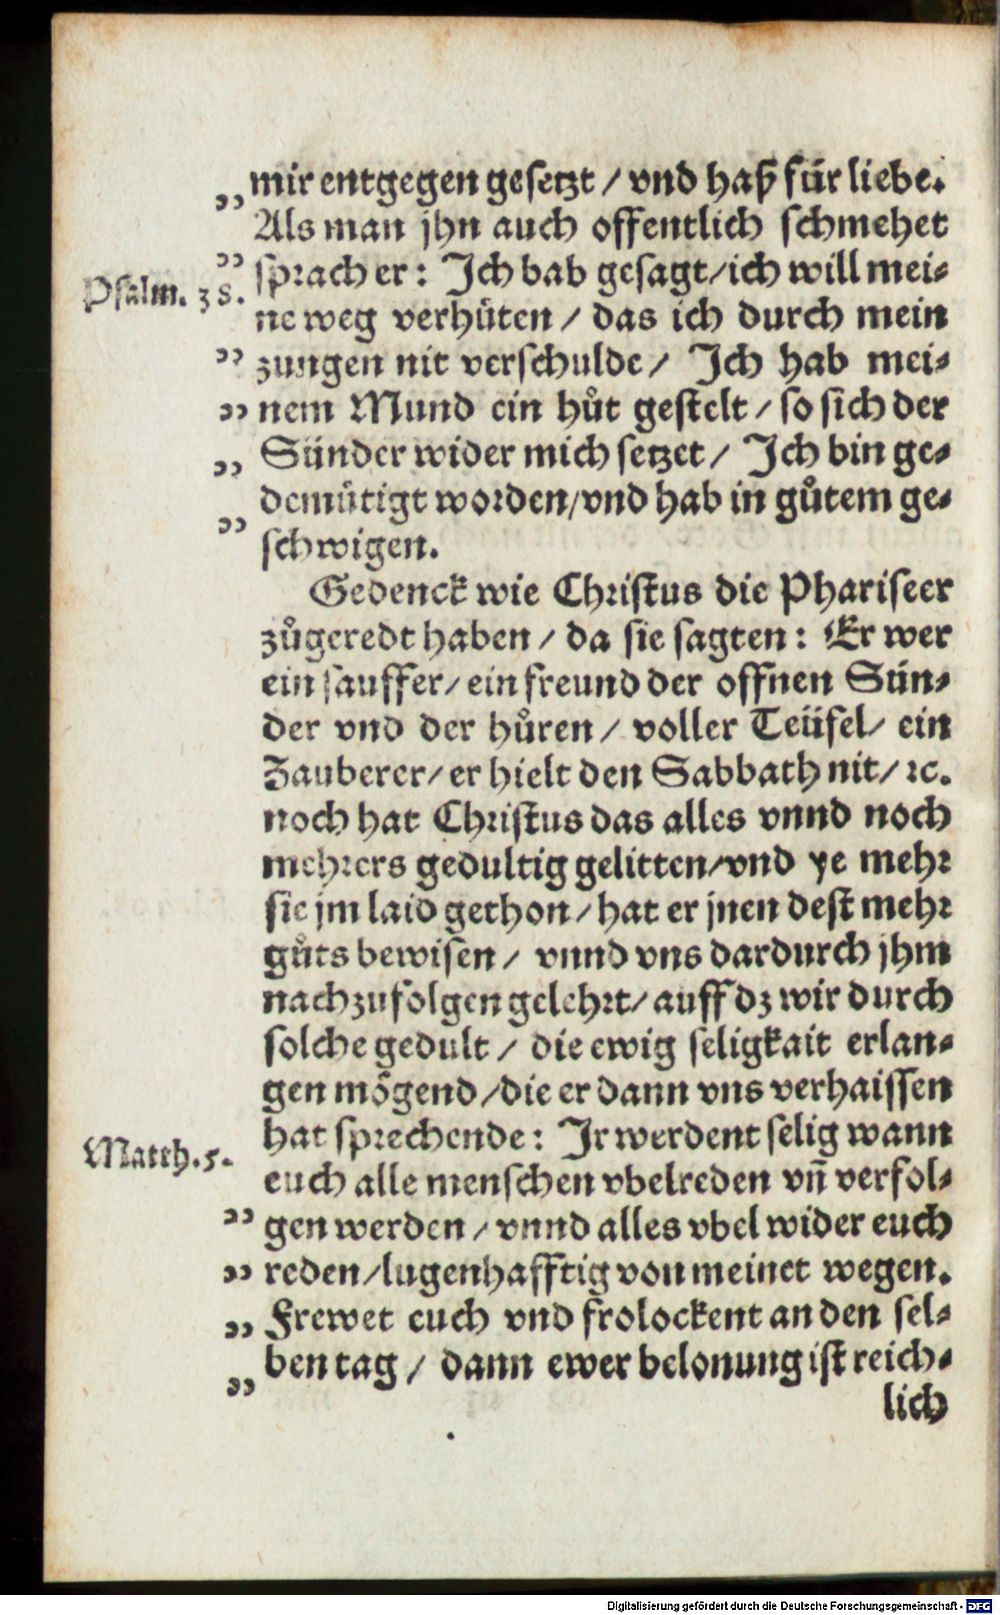 mir entgegen gesetzt / vnd haß für liebe.
Als man jhn auch offentlich schmehet
sprach er: Ich hab gesagt / ich will mei-
Psalm. 38.
ne weg verhüten / das ich durch mein
zungen nit verschulde / Ich hab mei-
nem Mund ein hůt gestelt / so sich der
Sünder wider mich setzet / Ich bin ge-
demütigt worden / vnd hab in gůtem ge-
schwigen.
Gedenck wie Christus die Phariseer
zůgeredt haben / da sie sagten: Er wer
ein sauffer / ein freund der offnen Sün-
der vnd der hůren / voller Teüfel / ein
Zauberer / er hielt den Sabbath nit / ꝛc.
noch hat Christus das alles vnnd noch
mehrers gedultig gelitten / vnd ye mehr
sie jm laid gethon / hat er jnen dest mehr
gůts bewisen / vnnd vns dardurch jhm
nachzufolgen gelehrt / auff dz wir durch
solche gedult / die ewig seligkait erlan-
gen mögend / die er dann vns verhaissen
hat sprechende: Ir werdent selig wann
Matth. 5.
euch alle menschen vbelreden vñ verfol-
gen werden / vnnd alles vbel wider euch
reden / lugenhafftig von meinet wegen.
Frewet euch vnd frolockent an den sel-
ben tag / dann ewer belonung ist reich-
lich
Digitalisierung gefördert durch die Deutsche Forschungsgemeinschaft - DFG